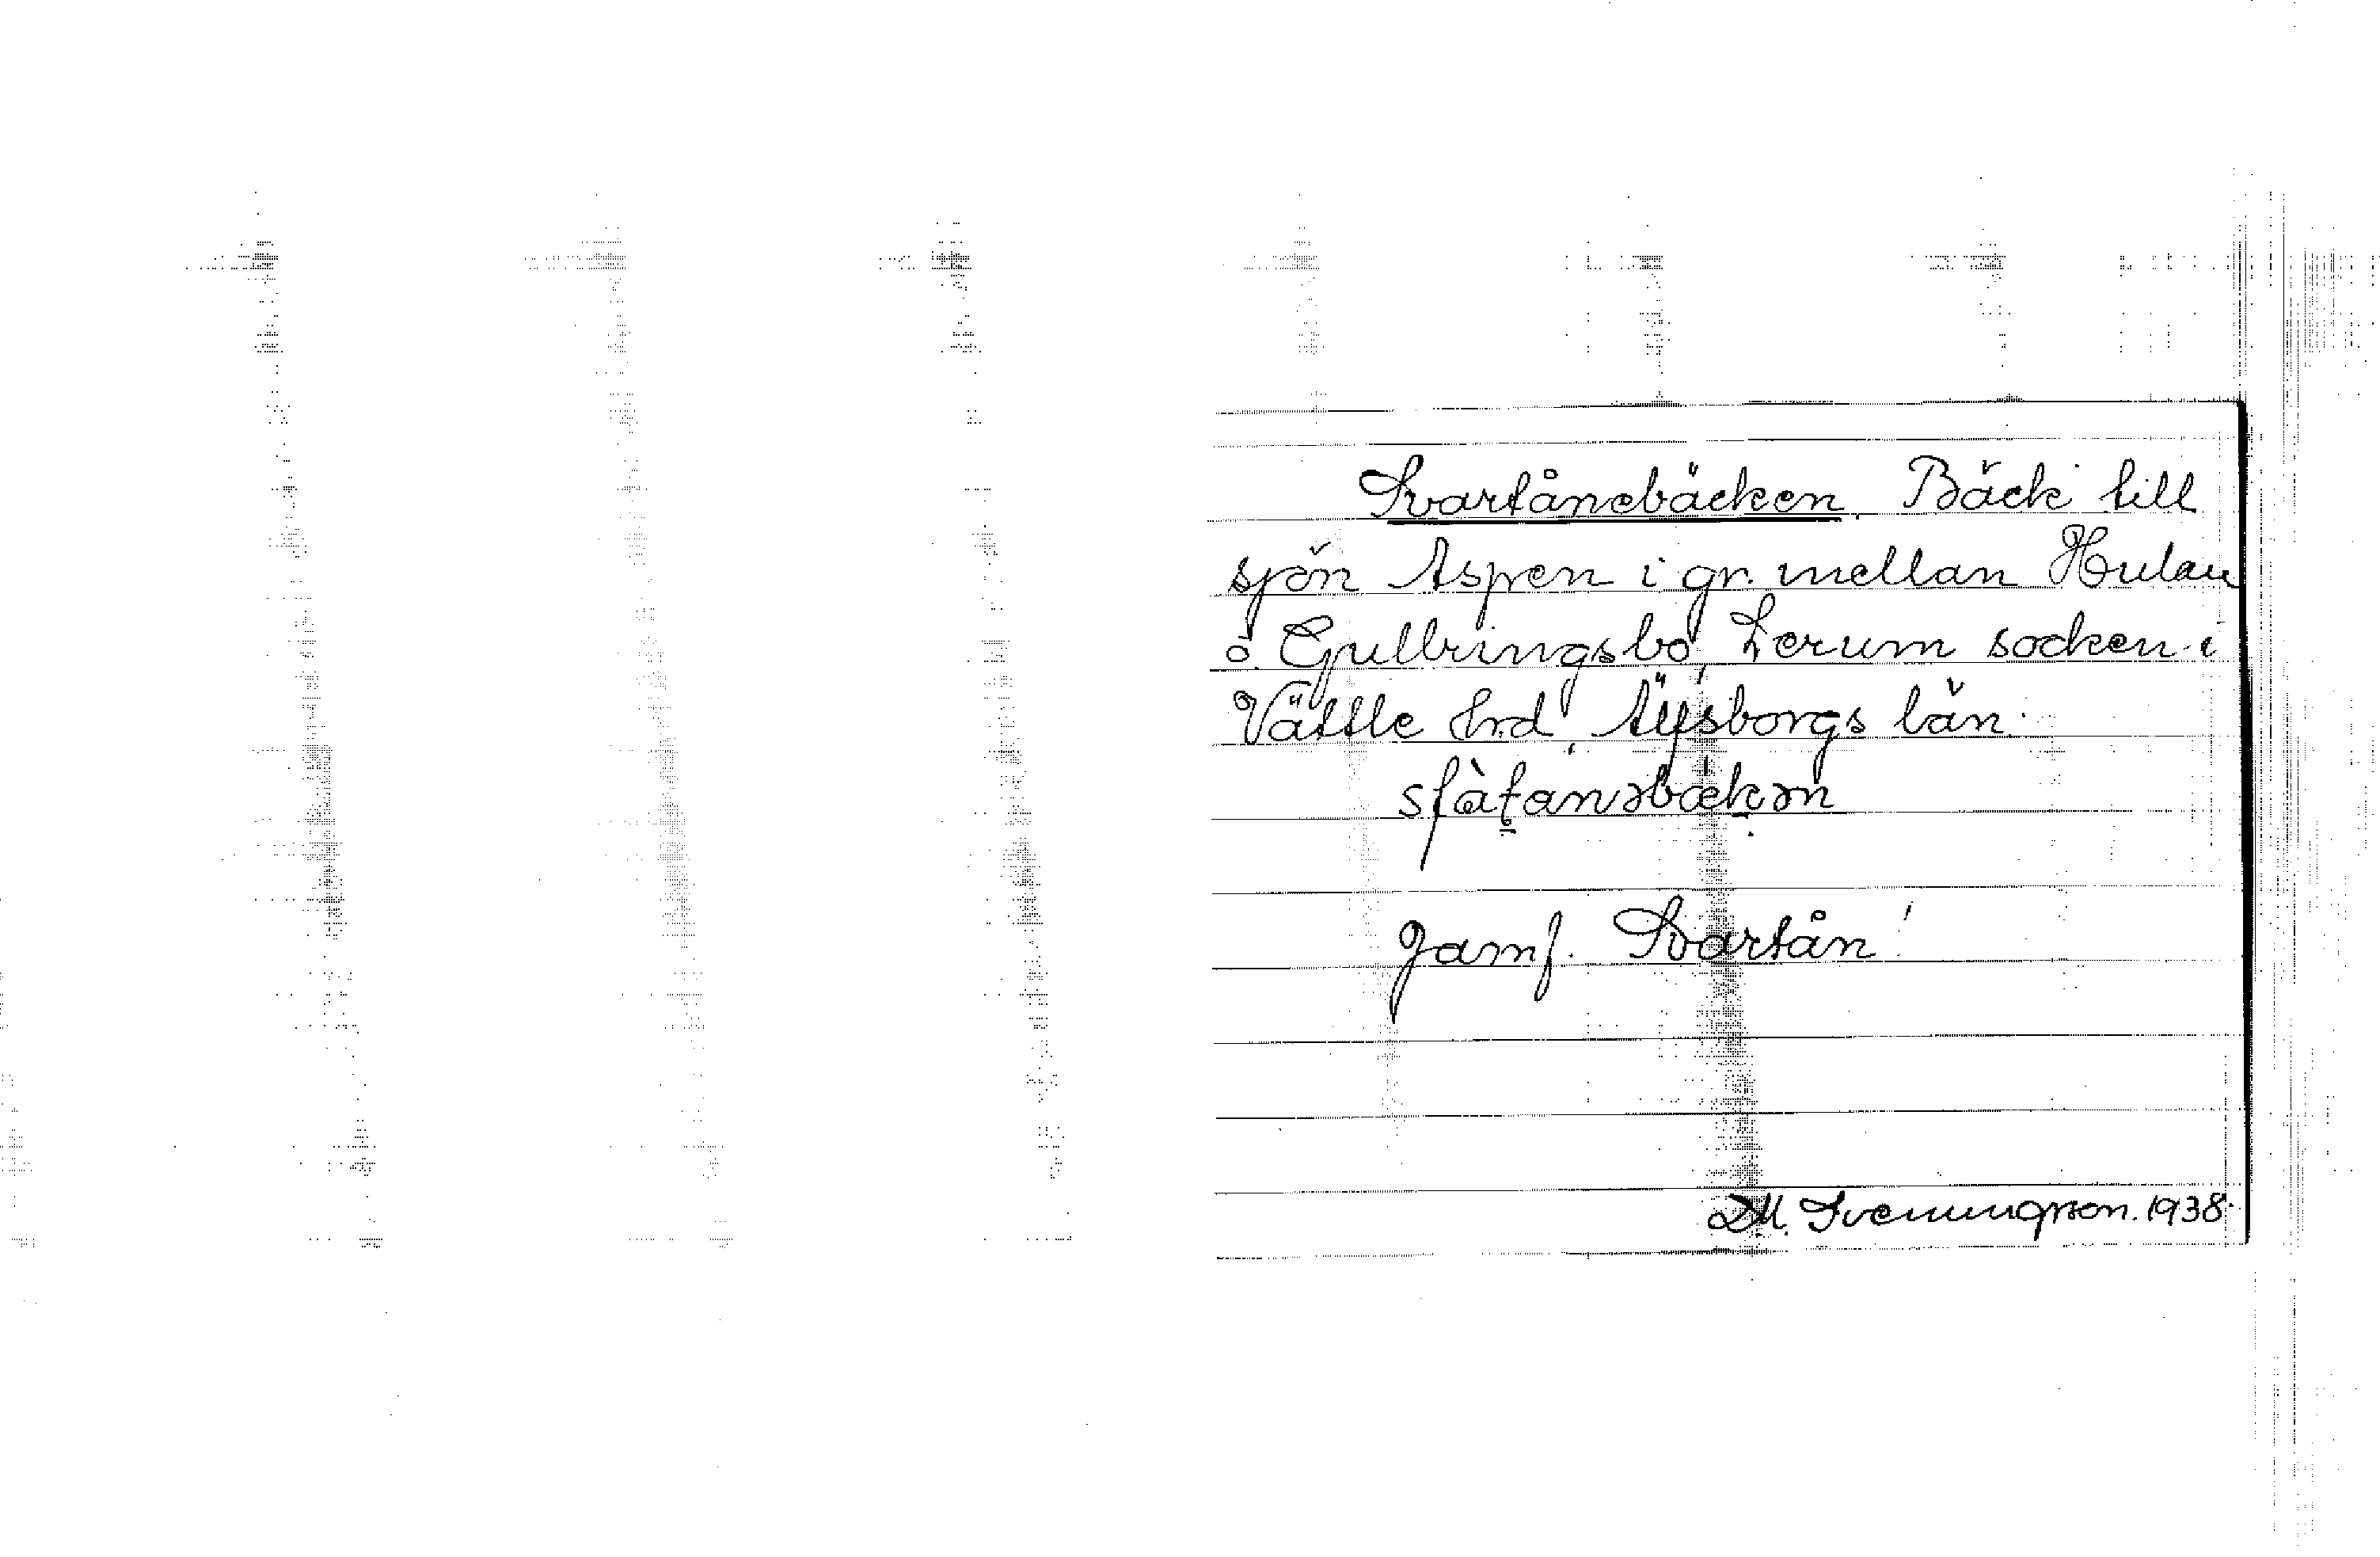 Svartånebäcken. Bäck till
sjön Aspen i gr. mellan Hulan
o. Gullringsbo, Lerum socken i
Vättle hrd, Älfsborgs län.
Jämf. Svartån
D.M. Svenningson. 1938.